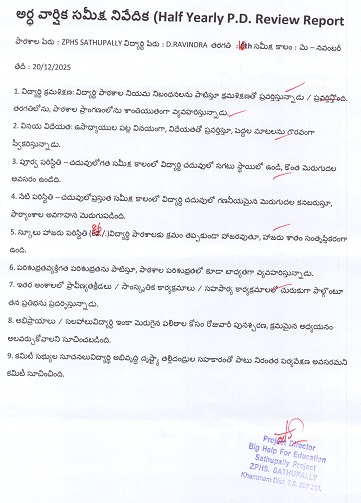 అర్ధ వార్షిక సమీక్ష నివేదిక (Half Yearly P.D. Review Report
పాఠశాల పేరు : ZPHS SATHUPALLY విద్యార్థి పేరు : D.RAVINDRA తరగతి : 10th సమీక్ష కాలం : మె – నవంబర్
తేదీ : 20/12/2025
1. విద్యార్థి క్రమశిక్షణ: విద్యార్థి పాఠశాల నియమ నిబంధనలను పాటిస్తూ క్రమశిక్షణతో ప్రవర్తిస్తున్నాడు / ప్రవర్తిస్తోంది.
తరగతిలోను, పాఠశాల ప్రాంగణంలోను శాంతియుతంగా వ్యవహరిస్తున్నాడు.
2. వినయ విధేయత: ఉపాధ్యాయుల పట్ల వినయంగా, విధేయతతో ప్రవర్తిస్తూ, పెద్దల మాటలను గౌరవంగా
స్వీకరిస్తున్నాడు.
3. పూర్వ పరిస్థితి – చదువులోగత సమీక్ష కాలంలో విద్యార్థి చదువులో సగటు స్థాయిలో ఉండి, కొంత మెరుగుదల
అవసరం ఉండేది.
4. నేటి పరిస్థితి – చదువులోప్రస్తుత సమీక్ష కాలంలో విద్యార్థి చదువులో గణనీయమైన మెరుగుదల కనబరుస్తూ,
పాఠ్యాంశాల అవగాహన మెరుగుపడింది.
5. స్కూలు హాజరు పరిస్థితి (/.)విద్యార్థి పాఠశాలకు క్రమం తప్పకుండా హాజరవుతూ, హాజరు శాతం సంతృప్తికరంగా
ఉంది.
6. పరిశుభ్రతవ్యక్తిగత పరిశుభ్రతను పాటిస్తూ, పాఠశాల పరిశుభ్రతలో కూడా బాధ్యతగా వ్యవహరిస్తున్నాడు.
7. ఇతర అంశాలలో ప్రావీణ్యతక్రీడలు / సాంస్కృతిక కార్యక్రమాలు / సహపాఠ్య కార్యక్రమాలలో చురుకుగా పాల్గొంటూ
తన ప్రతిభను ప్రదర్శిస్తున్నాడు.
8. అభిప్రాయాలు / సలహాలువిద్యార్థి ఇంకా మెరుగైన ఫలితాల కోసం రోజువారీ పునశ్చరణ, క్రమమైన అధ్యయనం
అలవర్చుకోవాలని సూచించబడింది.
9. కమిటీ సభ్యుల సూచనలువిద్యార్థి అభివృద్ధి దృష్ట్యా తల్లిదండ్రుల సహకారంతో పాటు నిరంతర పర్యవేక్షణ అవసరమని
కమిటీ సూచించింది.
Project Director
Big Help For Education
Sathupally Project
ZPHS. SATHUPALLY
Khammam Dist. T.S.